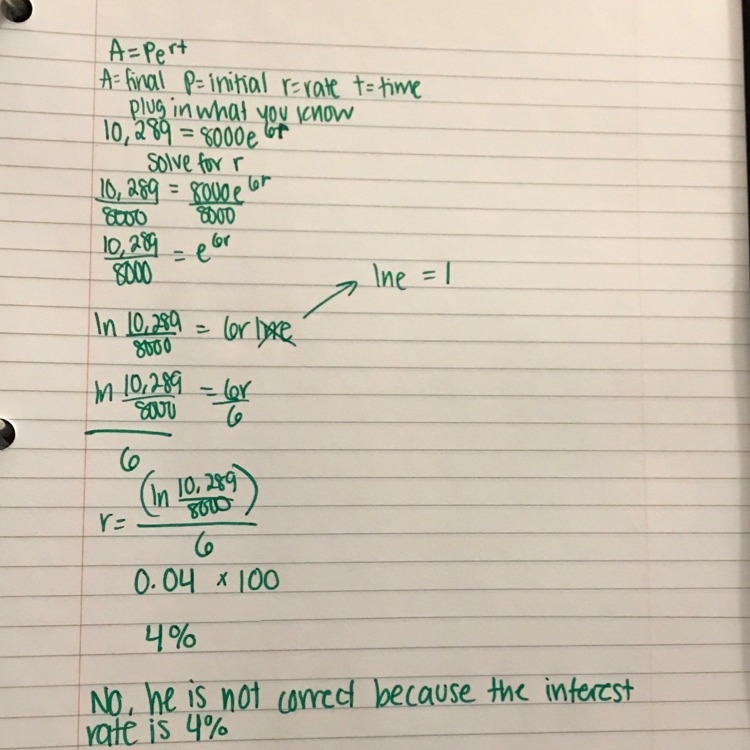 A = Pe^rt
A = final P = initial r = rate t = time
plug in what you know
10,289 = 8000e^6r
solve for r
10,289/8000 = 8000e^6r/8000
10,289/8000 = e^6r
lne = 1
ln 10,289/8000 = 6r lne
ln 10,289/8000 / 6 = 6r/6
r = (ln 10,289/8000) / 6
0.04 × 100
4%
No, he is not correct because the interest
rate is 4%